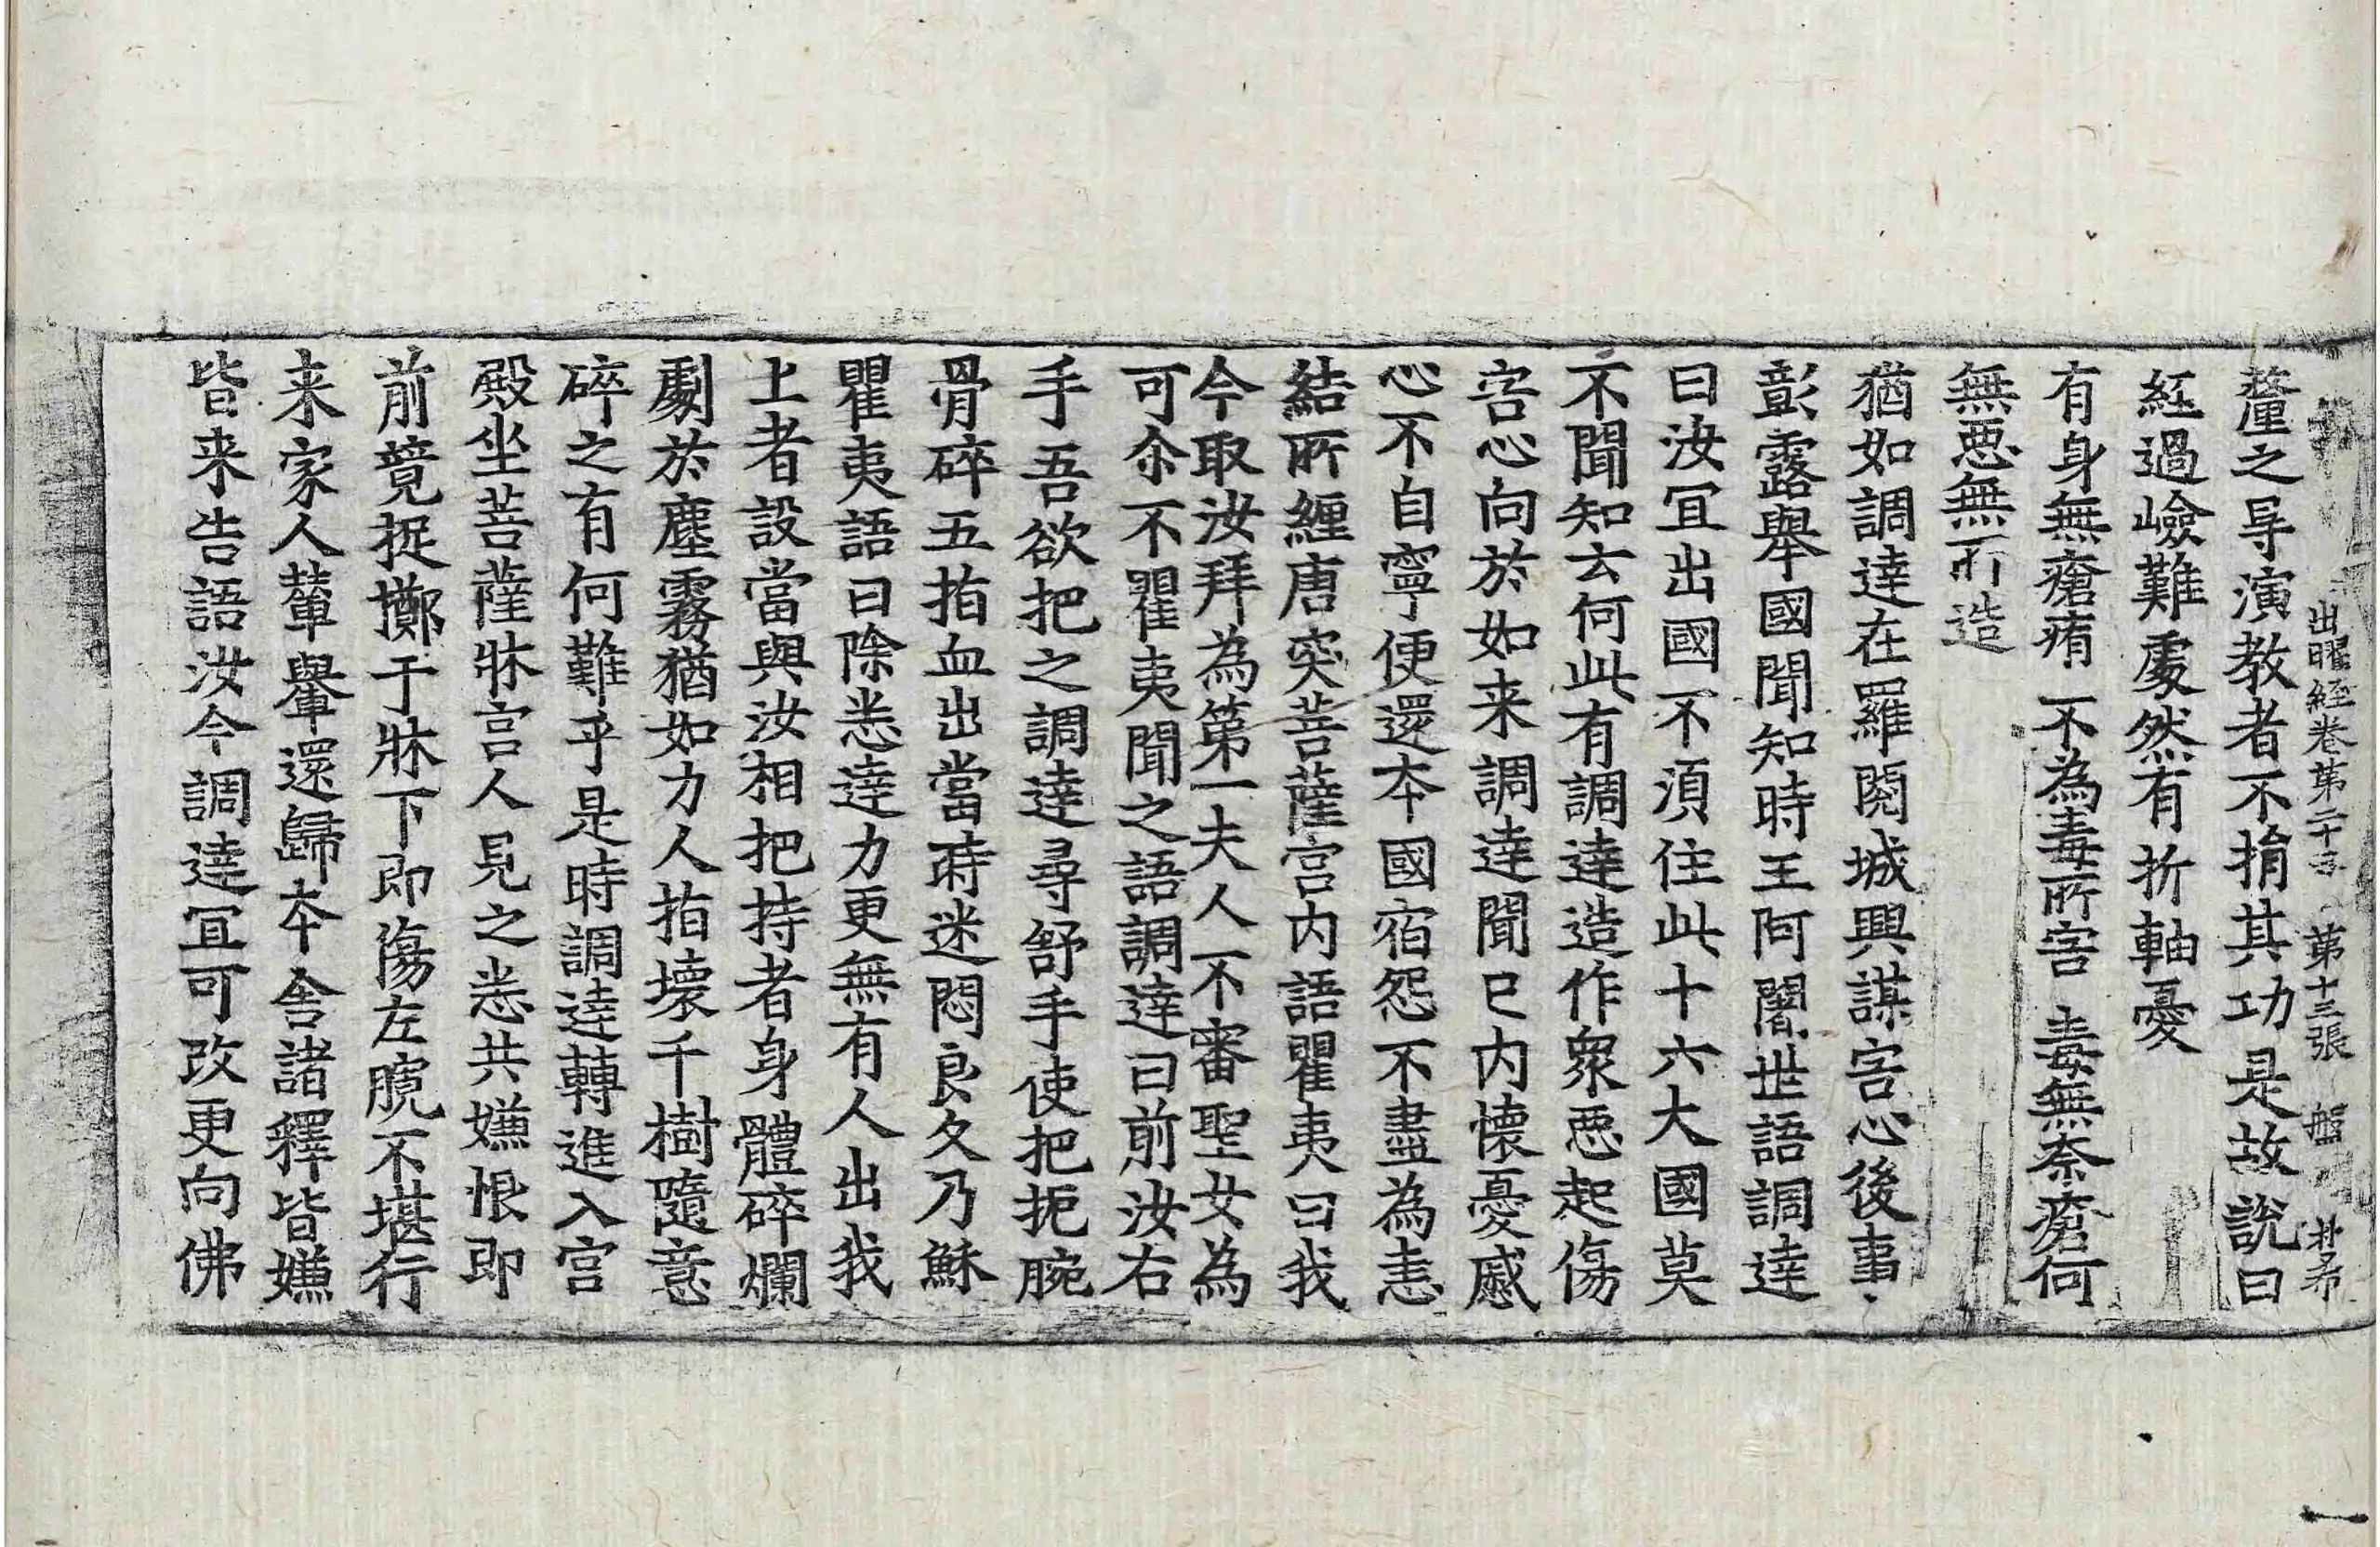 出曜經卷第二十五 第十三張 盤
氂之㝵演教者不捐其功是故說曰
經過嶮難處然有折軸憂
有身無瘡痏 不為毒所害 毒無奈瘡何
無惡無所造
猶如調達在羅閱城興謀害心後事
彰露舉國聞知時王阿闍世語調達
曰汝冝出國不湏住此十六大國莫
不聞知云何此有調達造作衆惡起傷
害心向於如来調達聞已内懷憂慼
心不自寧便還夲國宿怨不盡為恚
結所纏唐突菩薩宮内語瞿夷曰我
今取汝拜為第一夫人不審聖女為
可尒不瞿夷聞之語調達曰前汝右
手吾欲把之調達尋舒手使把扼腕
骨碎五指血出當時迷悶良久乃穌
瞿夷語曰除悉達力更無有人出我
上者設當與汝相把持者身體碎爛
劇於塵霧猶如力人指壞千樹隨意
碎之有何難乎是時調達轉進入宮
殿坐菩薩牀宮人見之悉共嫌恨即
前競捉擲于牀下即傷左䐗不堪行
来家人輦轝還歸夲舍諸釋皆嫌
皆来告語汝今調達冝可改更向佛